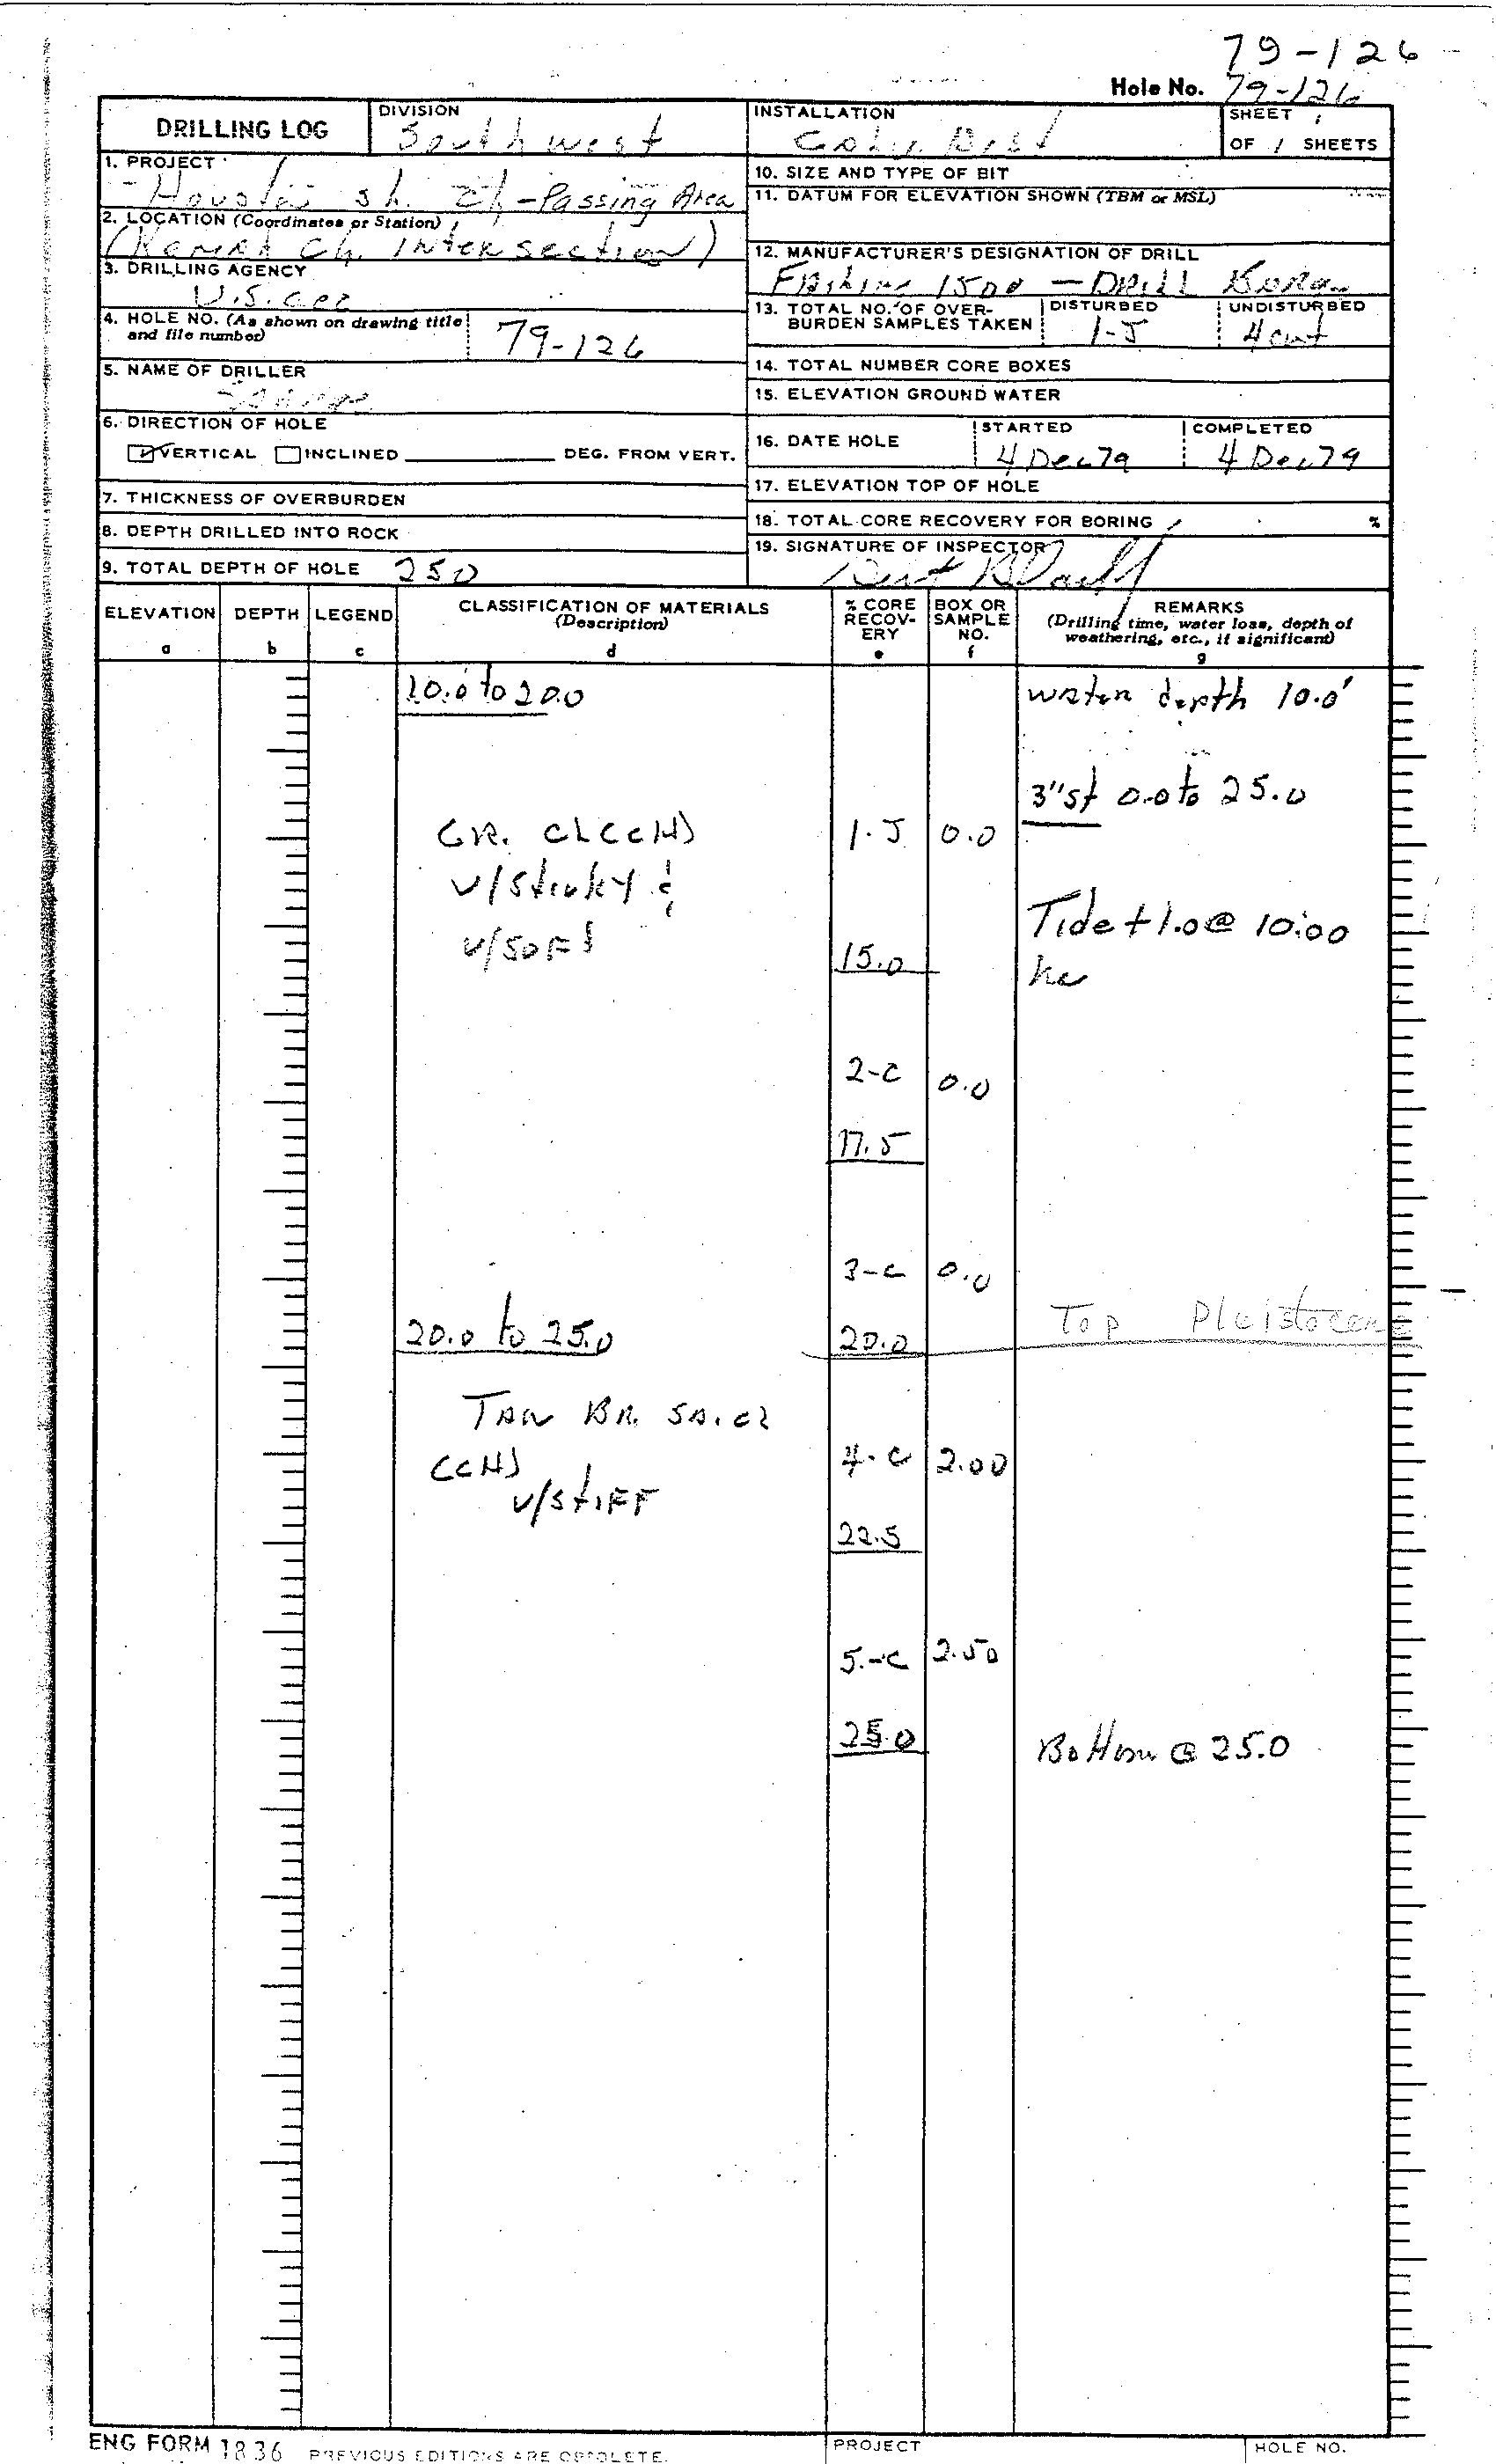 79-126
Hole No. 79-126
DRILLING LOG
DIVISION
Southwest
INSTALLATION
Galv. Dist
SHEET 1
OF 1 SHEETS
1. PROJECT
Houston Sh. Ch-Passing Area
2. LOCATION (Coordinates or Station)
( Ch. Intersection)
3. DRILLING AGENCY
U.S.
4. HOLE NO. (As shown on drawing title
and file number)
79-126
5. NAME OF DRILLER
6. DIRECTION OF HOLE
VERTICAL INCLINED DEG. FROM VERT.
7. THICKNESS OF OVERBURDEN
8. DEPTH DRILLED INTO ROCK
9. TOTAL DEPTH OF HOLE 250
10. SIZE AND TYPE OF BIT
11. DATUM FOR ELEVATION SHOWN (TBM or MSL)
12. MANUFACTURER'S DESIGNATION OF DRILL
1500 - Drill
13. TOTAL NO. OF OVER-
BURDEN SAMPLES TAKEN
DISTURBED
1-J
UNDISTURBED
4 cut
14. TOTAL NUMBER CORE BOXES
15. ELEVATION GROUND WATER
16. DATE HOLE
STARTED
4 Dec 79
COMPLETED
4 Dec 79
17. ELEVATION TOP OF HOLE
18. TOTAL CORE RECOVERY FOR BORING %
19. SIGNATURE OF INSPECTOR
ELEVATION
a
DEPTH
b
LEGEND
c
CLASSIFICATION OF MATERIALS
(Description)
d
% CORE
RECOV-
ERY
e
BOX OR
SAMPLE
NO.
f
REMARKS
(Drilling time, water loss, depth of
weathering, etc., if significant)
g
10.0 to 20.0
water depth 10.0'
3"st 0.0 to 25.0
GR. CL (CH)
1-J 0.0
v/sticky &
v/soft
Tide +1.0 @ 10:00
15.0
2-C 0.0
17.5
3-C 0.0
Top Pleistocene
20.0 to 25.0
20.0
TAN BR. SA. Cl
(CH)
4-C 2.00
v/stiff
22.5
5-C 2.50
25.0
Bottom @ 25.0
ENG FORM 1836 PREVIOUS EDITIONS ARE OBSOLETE.
PROJECT
HOLE NO.